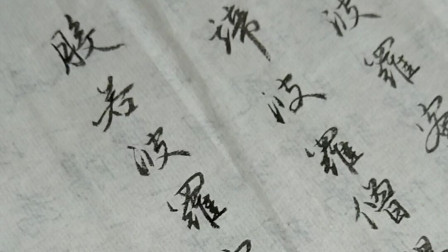 波羅
諦波羅僧
般若波羅